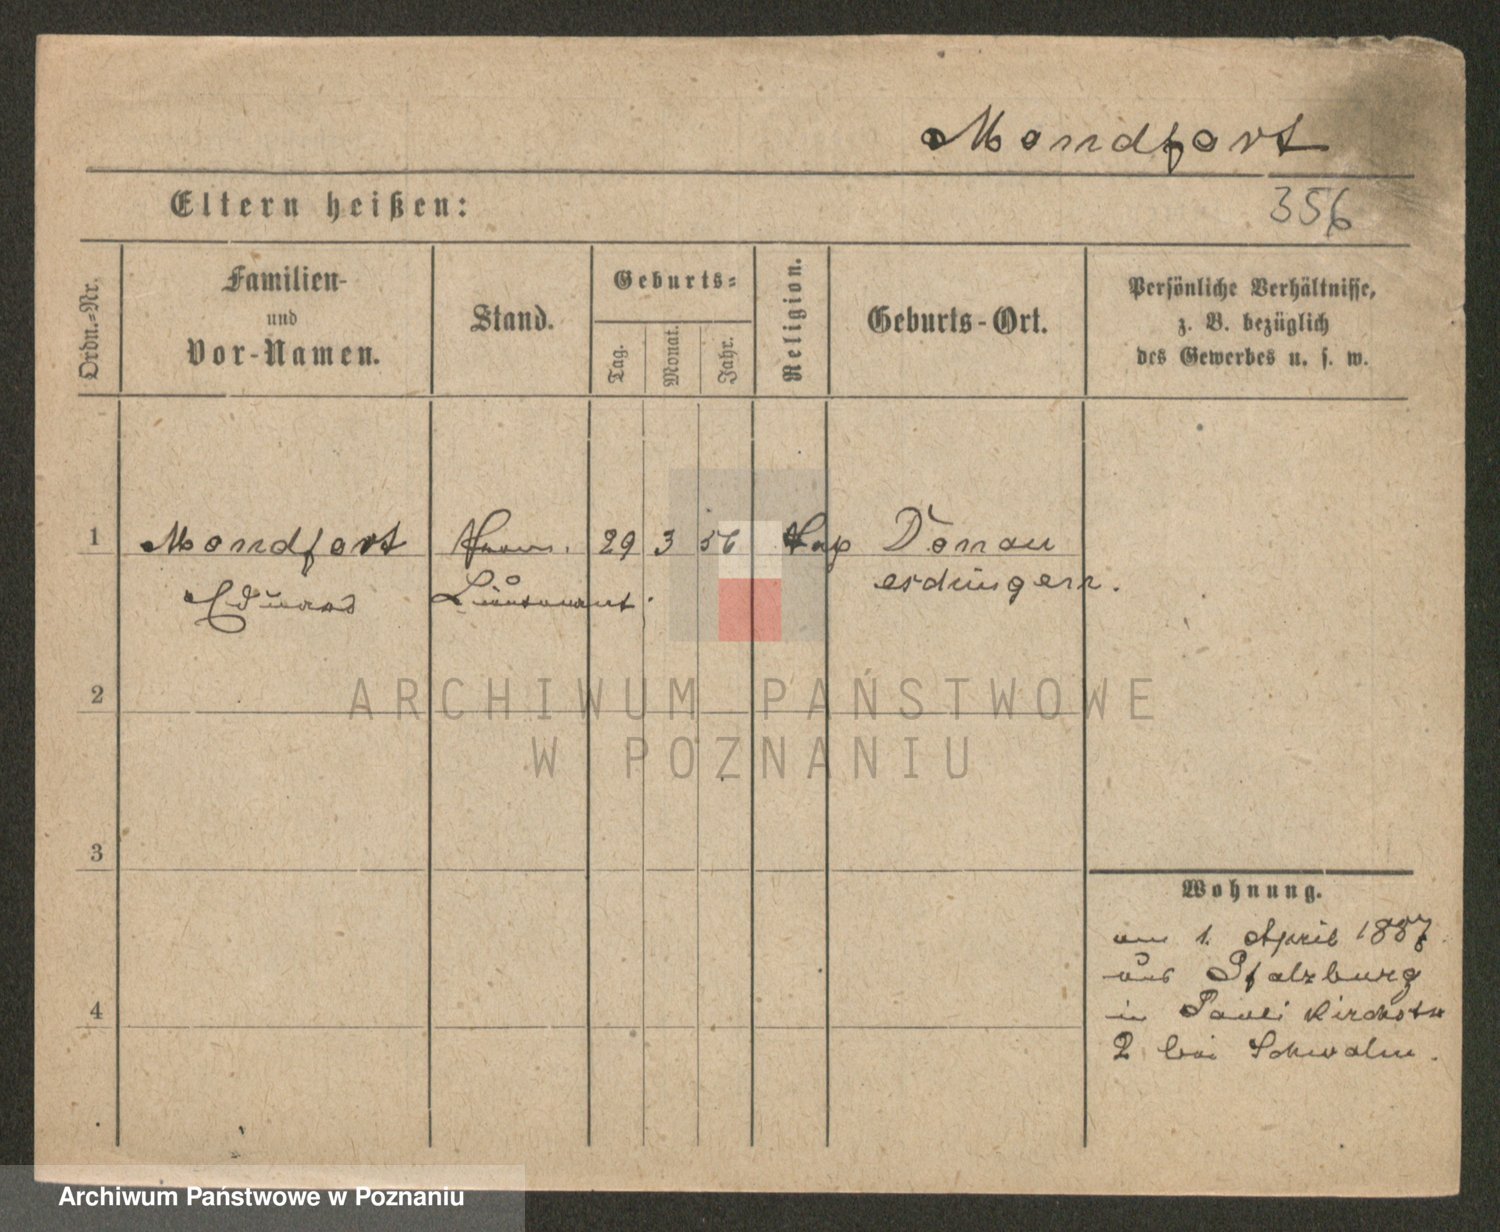 Mondfort
356
Eltern heißen:
Ordn.-Nr.
Familien-
und
Vor-Namen.
Stand.
Geburts-
Tag.
Monat.
Jahr.
Religion.
Geburts-Ort.
Persönliche Verhältnisse,
z. B. bezüglich
des Gewerbes u. s. w.
1
Mondfort
29 3 56
Donau
Eduard
Lieutenant.
eschingen.
2
ARCHIWUM PAŃSTWOWE
W POZNANIU
3
Wohnung.
am 1. April 1887
aus Pfalzburg
in Pauli Kirchstr
4
2 bei Schwalm.
Archiwum Państwowe w Poznaniu